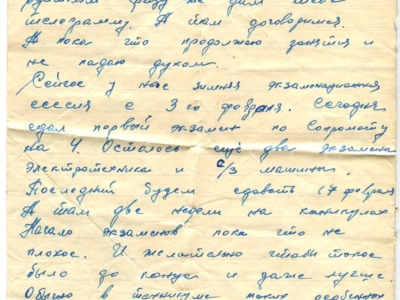 телеграмму. А там договоримся.
А пока что продолжаю занятия и
не падаю духом.
Сейчас у нас зимняя экзаменационная
сессия с 3го февраля. Сегодня
сдал первый экзамен по Сопромату
на 4. Осталось ещё два экзамена
Электротехника и с/з машины.
Последний будем сдавать 17 февраля
А там две недели на каникулах
Начало экзаменов пока что не
плохое. И желательно чтобы такое
было до конца и даже лучше
в техникуме таких